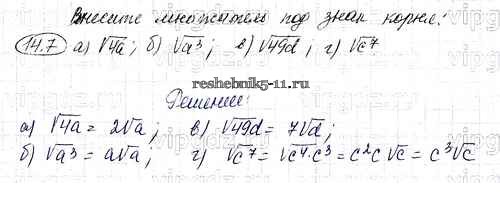 Внесите множитель под знак корня:
14.7 а) √4a; б) √a³; в) √49d; г) √c⁷
reshebnik5-11.ru
Решение:
а) √4a = 2√a; в) √49d = 7√d;
б) √a³ = a√a; г) √c⁷ = √c⁴·c³ = c²c√c = c³√c